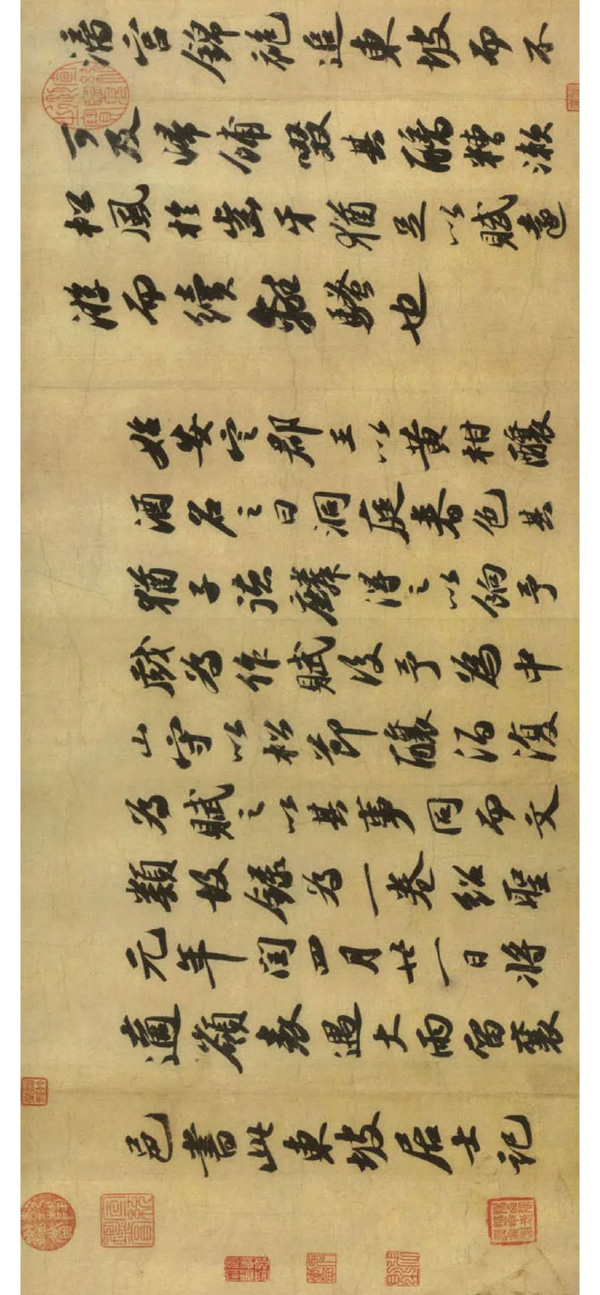 漓宮錦袍追東坡而不
可及歸餔啜其醨糟漱
松風於齒牙猶足以賦遠
游而續離騷也
始安定郡王以黄柑釀
酒名之曰洞庭春色其
猶子德麟得之以餉予
戲為作賦後予為中
山守以松節釀酒復
為賦之以其事同而文
類故錄為一卷紹聖
元年閏四月廿一日將
適嶺表遇大雨留襄
邑書此東坡居士記